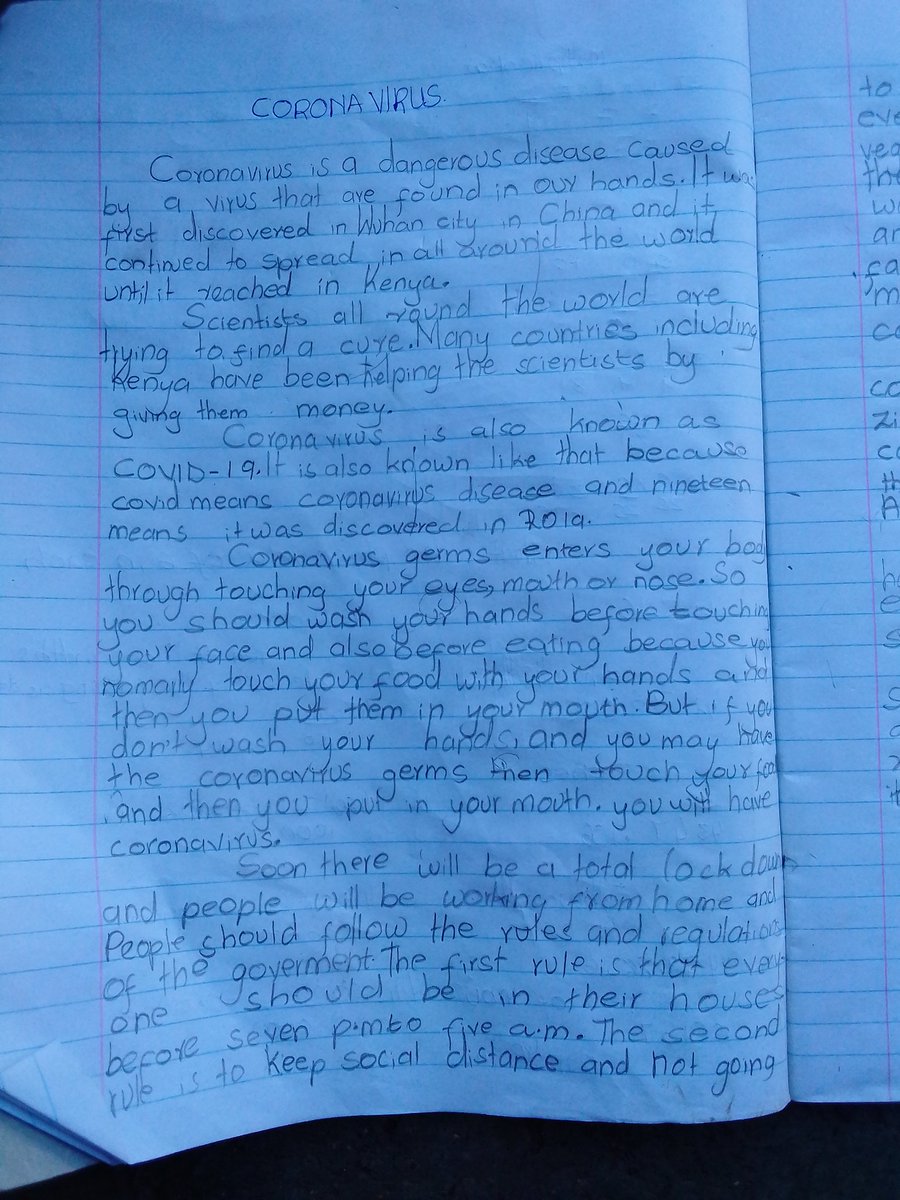 CORONA VIRUS.
Coronavirus is a dangerous disease caused
by a virus that are found in our hands. It was
first discovered in Wuhan city in China and it
continued to spread in all around the world
until it reached in Kenya.
Scientists all round the world are
trying to find a cure. Many countries including
Kenya have been helping the scientists by
giving them money.
Corona virus is also known as
COVID-19. It is also known like that because
covid means coronavirus disease and nineteen
means it was discovered in 2019.
Coronavirus germs enters your body
through touching your eyes, mouth or nose. So
you should wash your hands before touching
your face and also before eating because you
nomaily touch your food with your hands and
then you put them in your mouth. But if you
don't wash your hands, and you may have
the coronavirus germs then touch your food
and then you put in your mouth. you will have
coronavirus.
Soon there will be a total lockdown
and people will be working from home and
People should follow the rules and regulations
of the goverment. The first rule is that every
one should be in their houses
before seven p.m to five a.m. The second
rule is to keep social distance and not going
to